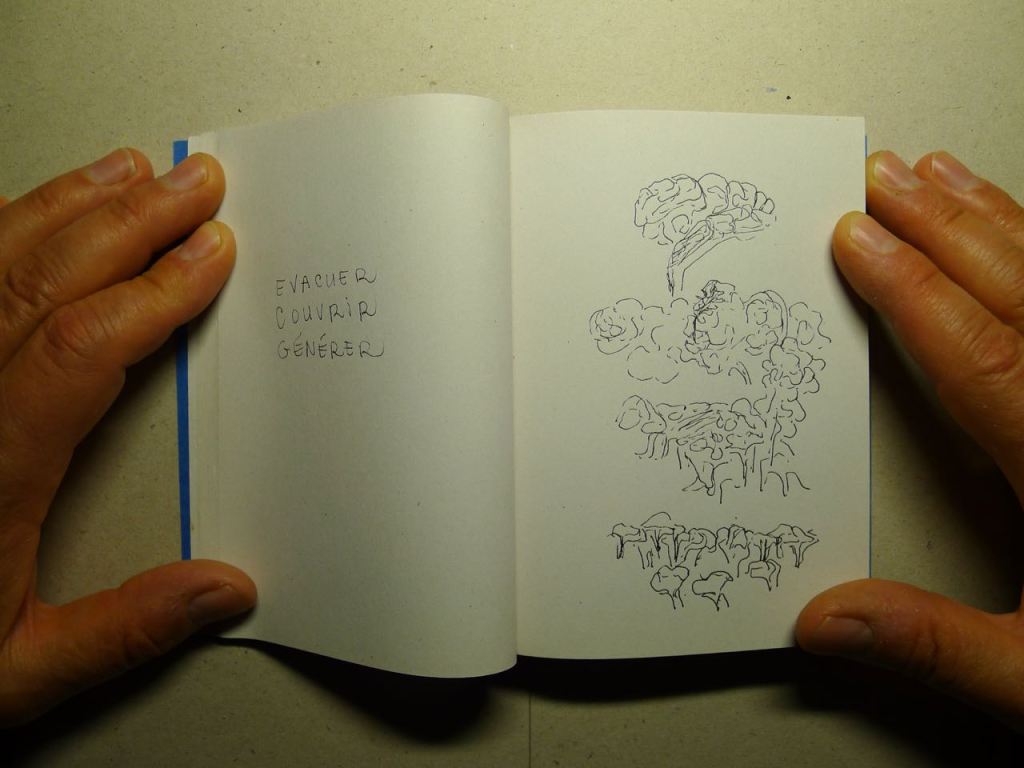 EVACUER
COUVRIR
GÉNÉRER